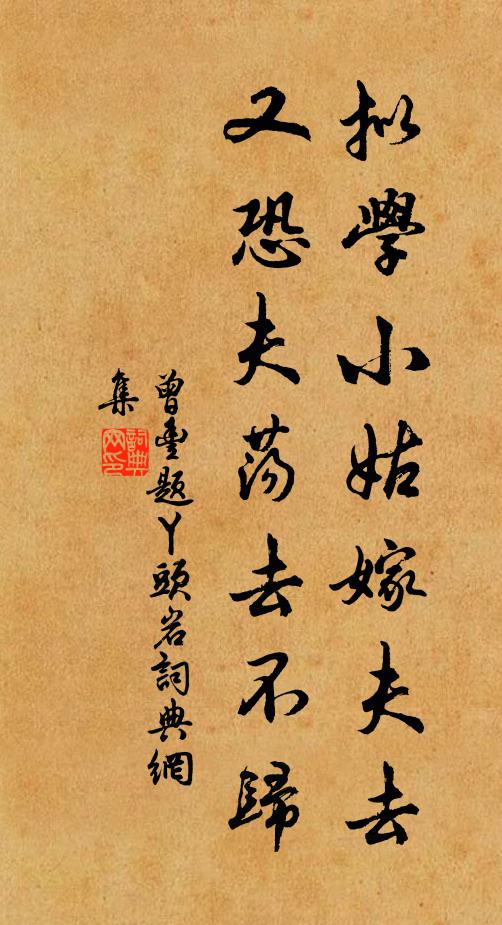 拟學小姑嫁夫去
又恐夫荡去不歸
曾豊题丫頭岩詞典網
集
詞典网印